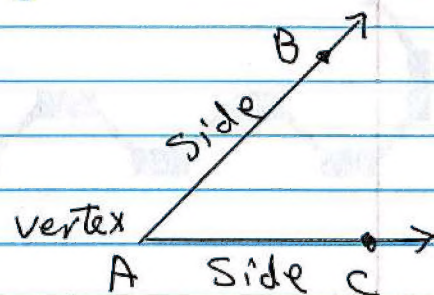 B
Side
vertex
A Side C